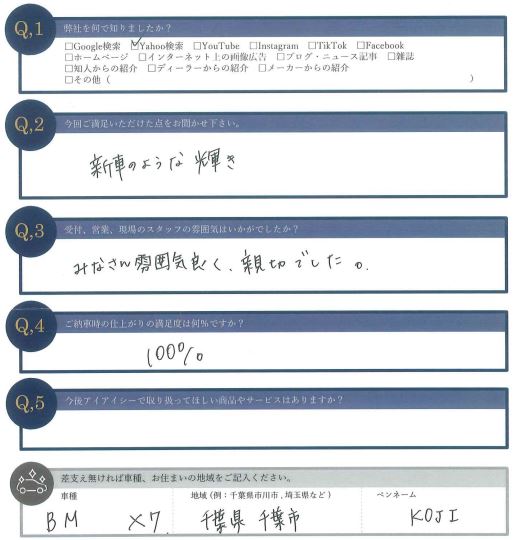 Q,1 弊社を何で知りましたか？
□Google検索 ☑Yahoo検索 □YouTube □Instagram □TikTok □Facebook
□ホームページ □インターネット上の画像広告 □ブログ・ニュース記事 □雑誌
□知人からの紹介 □ディーラーからの紹介 □メーカーからの紹介
□その他（ ）
Q,2 今回ご満足いただけた点をお聞かせ下さい。
新車のような輝き
Q,3 受付、営業、現場のスタッフの雰囲気はいかがでしたか？
みなさん雰囲気良く、親切でした。
Q,4 ご納車時の仕上がりの満足度は何％ですか？
100%
Q,5 今後アイアイシーで取り扱ってほしい商品やサービスはありますか？
差支え無ければ車種、お住まいの地域をご記入ください。
車種 地域（例：千葉県市川市，埼玉県など） ペンネーム
BM X7. 千葉県 千葉市 KOJI